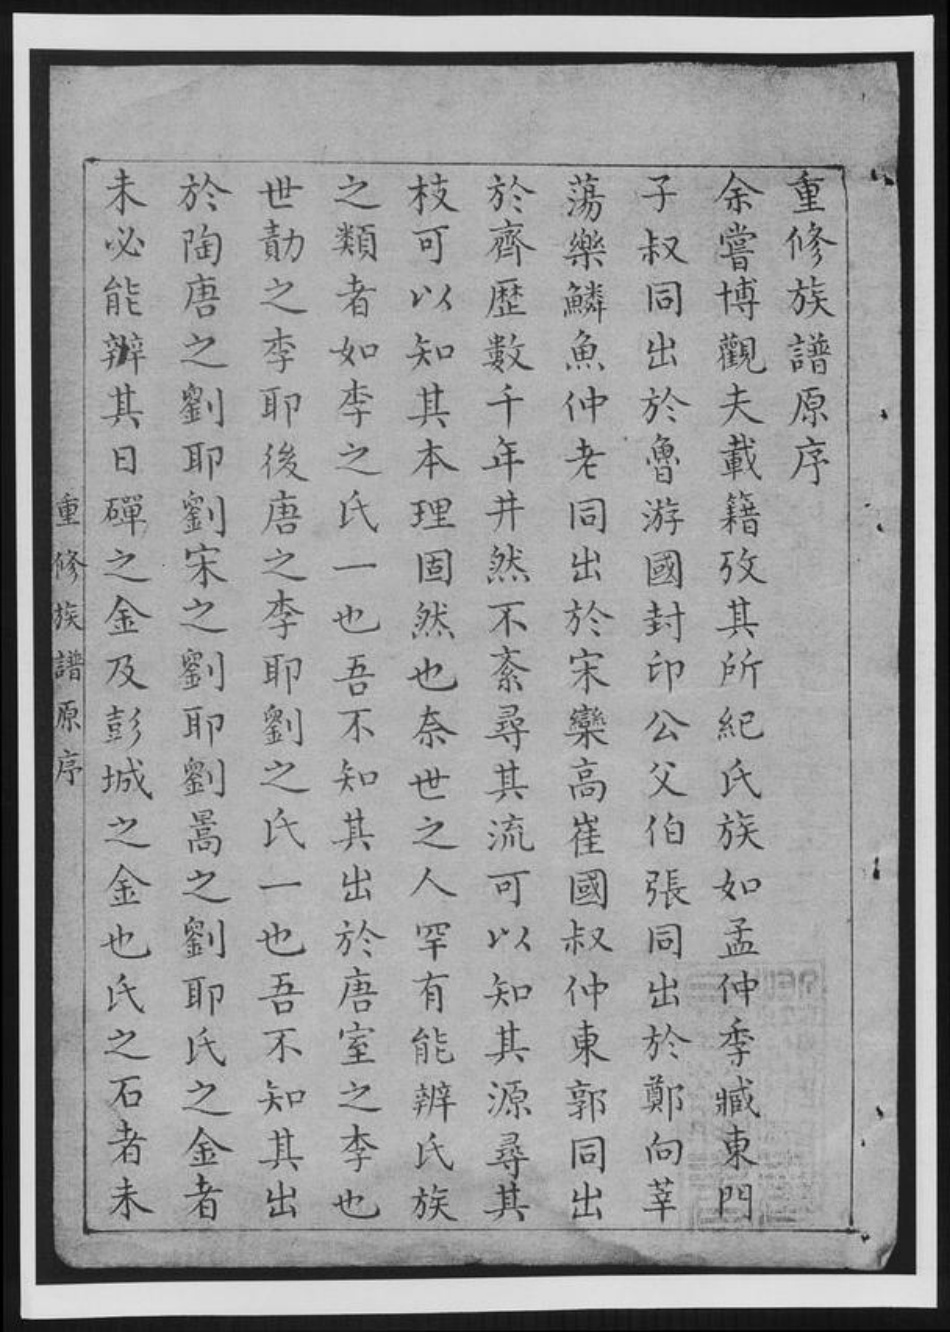 重修族譜原序
余嘗博觀夫載籍攷其所紀氏族如孟仲季臧東門
子叔同出於魯游國封印公父伯張同出於鄭向莘
蕩樂鱗魚仲老同出於宋欒高崔國叔仲東郭同出
於齊歷數千年井然不紊尋其流可以知其源尋其
枝可以知其本理固然也奈世之人罕有能辨氏族
之類者如李之氏一也吾不知其出於唐室之李也
世勣之李耶後唐之李耶劉之氏一也吾不知其出
於陶唐之劉耶劉宋之劉耶劉暠之劉耶氏之金者
未必能辨其日磾之金及彭城之金也氏之石者未
重修族譜原序